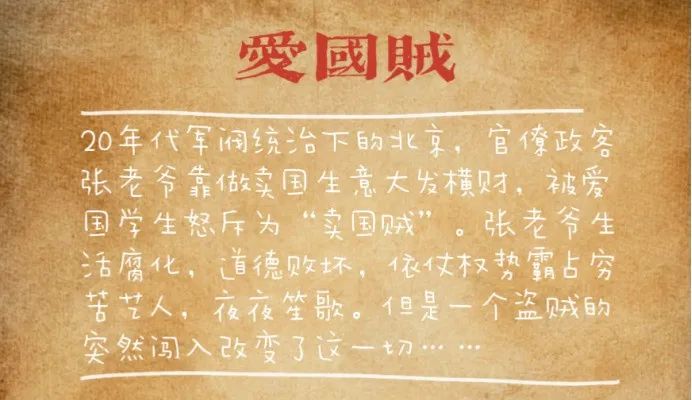 愛國賊
20年代军阀统治下的北京，官僚政客
张老爷靠做卖国生意大发横财，被爱
国学生怒斥为“卖国贼”。张老爷生
活腐化，道德败坏，依仗权势霸占穷
苦艺人，夜夜笙歌。但是一个盗贼的
突然闯入改变了这一切……